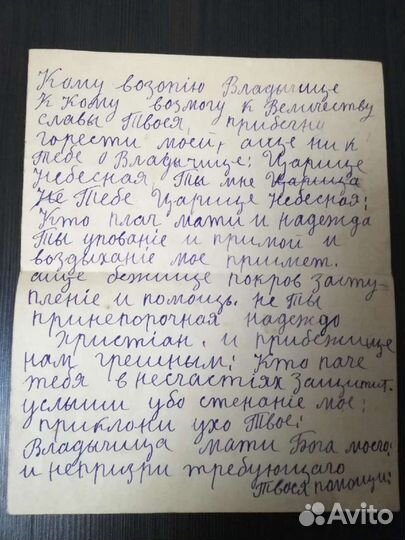 Кому возопію Владычице
к кому возмогу к Величеству
славы Твоея, прибечну
горести моей, аще ни к
тебе Владычице: Царице
Небесная, Ты мне Царица
Не Тебе Царице Небесная:
Кто плач мати и надежда
Ты упованіе и примой и
воздыханіе мое приимет.
аще бежище покров засту-
пленіе и помощь. не Ты
принепорочная надеждо
христіан. и прибежище
нам грешным: Кто паче
тебя в несчастіях защитит.
услыши убо стенаніе мое:
приклони ухо Твое:
Владычица мати Бога моего:
и непризри требующаго
Твоея помощи:
Avito